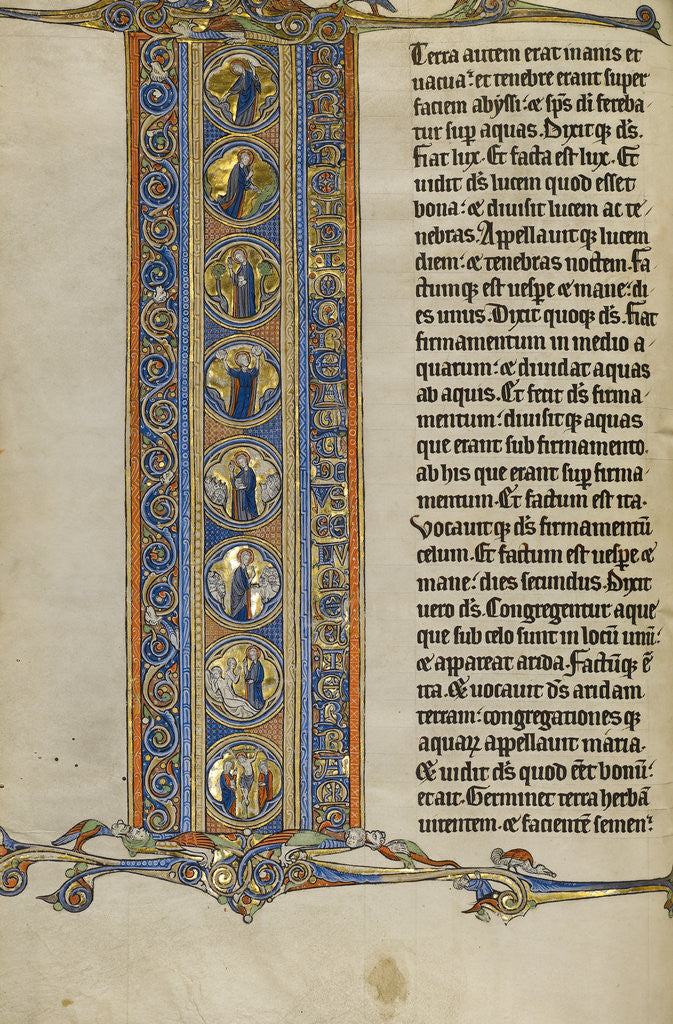 IN PRINCIPIO CREAVIT DEUS CELUM ET TERRAM
Terra autem erat inanis et
uacua: et tenebre erant super
faciem abyssi: & sp̄s dī fereba
tur sup̄ aquas. Dixitq̨ d̄s.
Fiat lux. Et facta est lux. Et
uidit d̄s lucem quod esset
bona: & diuisit lucem ac te/
nebras. Appellauitq̨ lucem
diem: & tenebras noctem. Fa/
ctumq̨ est uesp̄e & mane: di/
es unus. Dixit quoq̨ d̄s. Fiat
firmamentum in medio a/
quarum: & diuidat aquas
ab aquis. Et fecit d̄s firma/
mentum: diuisitq̨ aquas
que erant sub firmamento.
ab his que erant sup̄ firma/
mentum. Et factum est ita.
Vocauitq̨ d̄s firmamentū
celum. Et factum est uesp̄e &
mane: dies secundus. Dixit
uero d̄s. Congregentur aque
que sub celo sunt in locū unū:
& appareat arida. Factūq̨ ē
ita. Et uocauit d̄s aridam
terram: congregationes q̨
aquaꝝ appellauit maria.
Et uidit d̄s quod eēt bonū:
et ait. Germinet terra herbā
uirentem. & facientē semen: